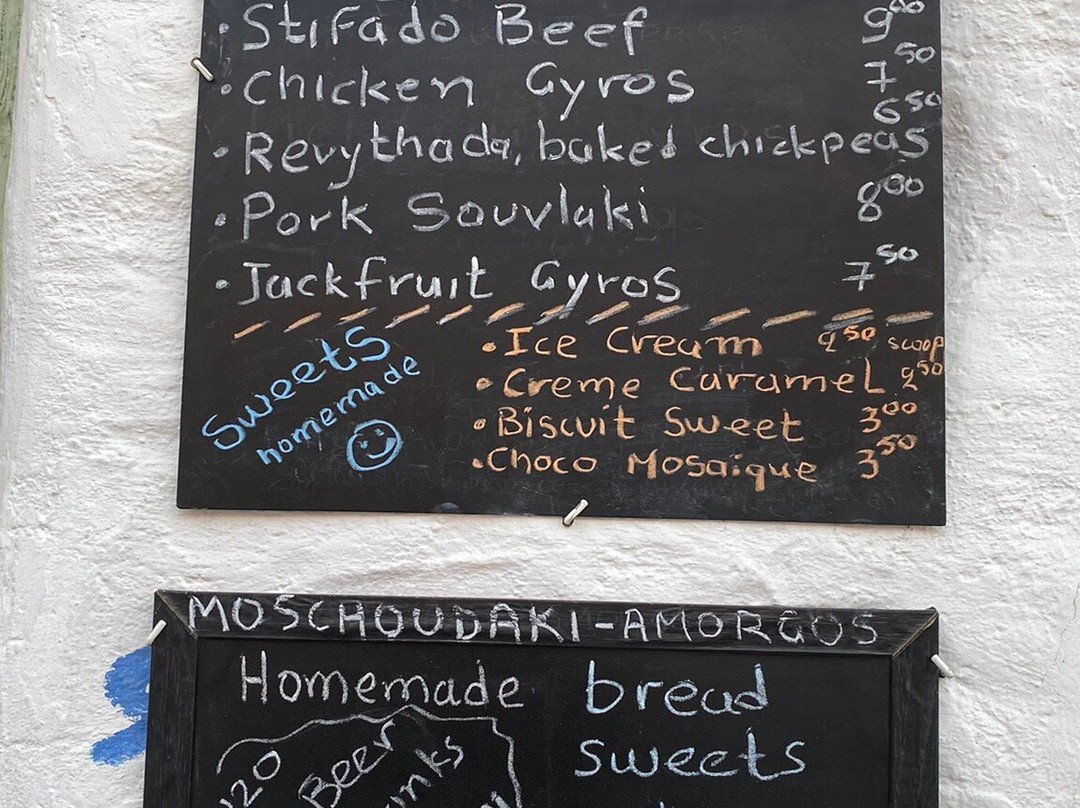 · Stifado Beef 9⁰⁰
· Chicken Gyros 7⁵⁰
6⁵⁰
· Revythada, baked chickpeas
· Pork Souvlaki 8⁰⁰
· Jackfruit Gyros 7⁵⁰
Sweets
homemade
· Ice Cream 2⁵⁰ scoop
· Creme Caramel 2⁵⁰
· Biscuit Sweet 3⁰⁰
· Choco Mosaique 3⁵⁰
MOSCHOUDAKI-AMORGOS
Homemade bread
sweets
Beer